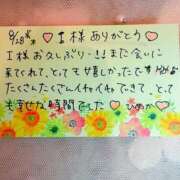 8/28(木) ♡ I様ありがとう ♡
I様お久しぶりー!!また会いに
来てくれて、とっても嬉しかったです
たくさんたくさんイチャイチャできて、とって
も幸せな時間でした♡ひめか♡